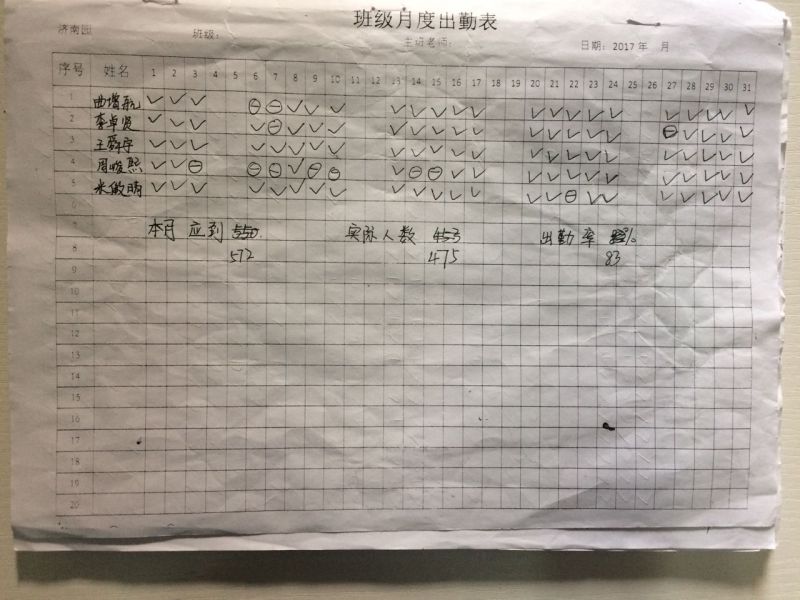 班级月度出勤表
济南园 班级： 主班老师： 日期：2017年 月
序号 姓名 1 2 3 4 5 6 7 8 9 10 11 12 13 14 15 16 17 18 19 20 21 22 23 24 25 26 27 28 29 30 31
1 曲增航 ✓ ✓ ✓ ⊖ ⊖ ✓ ✓ ✓ ✓ ✓ ✓ ✓ ✓ ✓ ✓ ✓ ✓ ✓ ✓ ✓ ✓ ✓ ✓
2 李卓贤 ✓ ✓ ✓ ✓ ⊖ ✓ ✓ ✓ ✓ ✓ ✓ ✓ ✓ ✓ ✓ ✓ ✓ ✓ ⊖ ✓ ✓ ✓ ✓
3 王舜宇 ✓ ✓ ✓ ✓ ✓ ✓ ✓ ✓ ✓ ✓ ✓ ✓ ✓ ✓ ✓ ✓ ✓ ✓ ✓ ✓ ✓ ✓ ✓
4 周峻熙 ✓ ✓ ⊖ ⊖ ⊖ ✓ ⊖ ⊖ ✓ ⊖ ⊖ ✓ ✓ ✓ ✓ ✓ ✓ ✓ ✓ ✓ ✓ ✓ ✓
5 米傲晴 ✓ ✓ ✓ ✓ ✓ ✓ ✓ ✓ ✓ ✓ ✓ ✓ ✓ ✓ ✓ ⊖ ✓ ✓ ✓ ✓ ✓ ✓ ✓
6
7 本月 应到 550 实际人数 453 出勤率 %
8 572 475 83
9
10
11
12
13
14
15
16
17
18
19
20